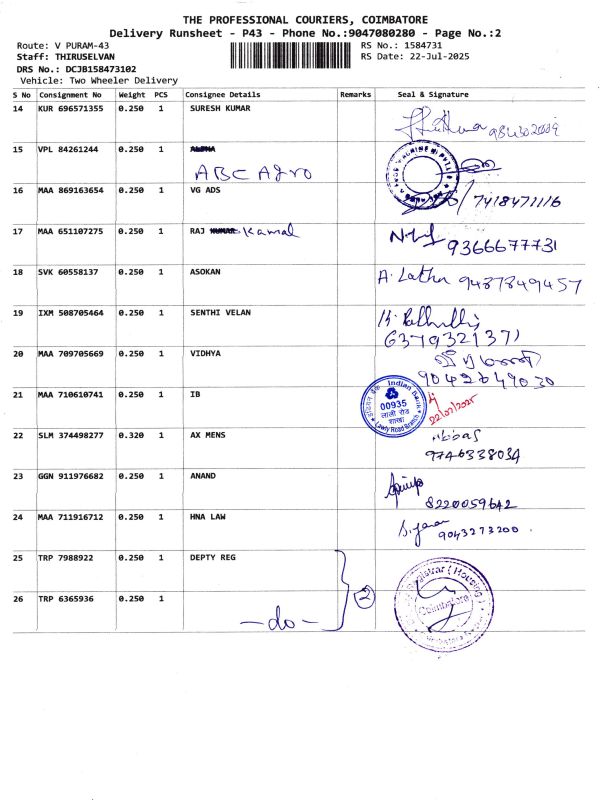 THE PROFESSIONAL COURIERS, COIMBATORE
Delivery Runsheet - P43 - Phone No.:9047080280 - Page No.:2
Route: V PURAM-43 RS No.: 1584731
Staff: THIRUSELVAN RS Date: 22-Jul-2025
DRS No.: DCJB158473102
Vehicle: Two Wheeler Delivery
S No Consignment No Weight PCS Consignee Details Remarks Seal & Signature
14 KUR 696571355 0.250 1 SURESH KUMAR
15 VPL 84261244 0.250 1
ABC Agro
16 MAA 869163654 0.250 1 VG ADS 7418471116
17 MAA 651107275 0.250 1 RAJ Kamal
9366677731
18 SVK 60558137 0.250 1 ASOKAN A. Latha 9487849457
19 IXM 508705464 0.250 1 SENTHI VELAN
6379321371
20 MAA 709705669 0.250 1 VIDHYA
9042649030
21 MAA 710610741 0.250 1 IB Indian Bank 00935 लाली रोड शाखा Lawly Road Branch 22/07/2025
22 SLM 374498277 0.320 1 AX MENS Abbas
9746338034
23 GGN 911976682 0.250 1 ANAND
8220059642
24 MAA 711916712 0.250 1 HNA LAW
9043273200
25 TRP 7988922 0.250 1 DEPTY REG (Housing)
2 Coimbatore
26 TRP 6365936 0.250 1
-do-